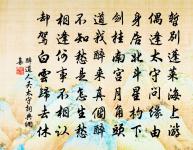 暫別蓬萊海上游
偶逢太守問緣由
身居北斗星杓下
劍挂南宮月角頭
道我醉來真個醉
不知愁是怎生愁
相逢何事不相認
卻駕白雲歸去休